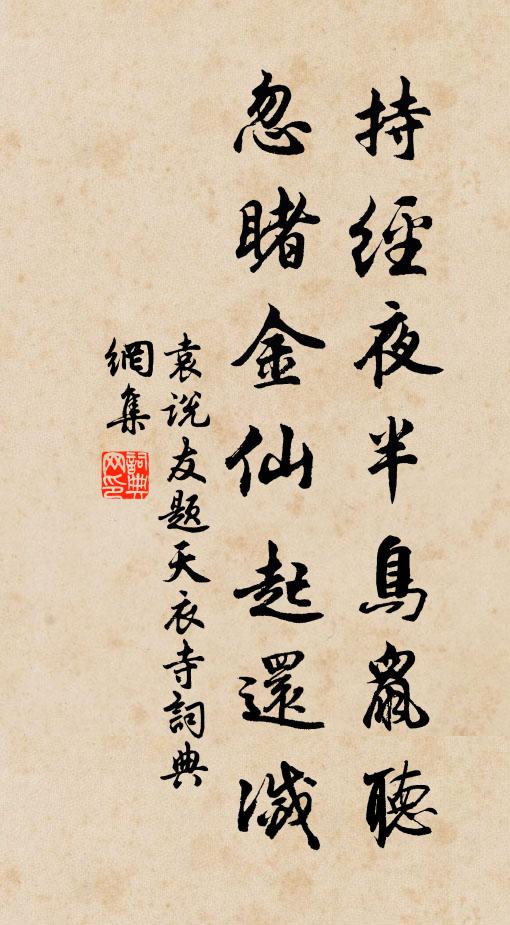 持經夜半鳥鼠聽
忽睹金仙起還滅
袁说友题天衣寺詞典
網集
詞典網印